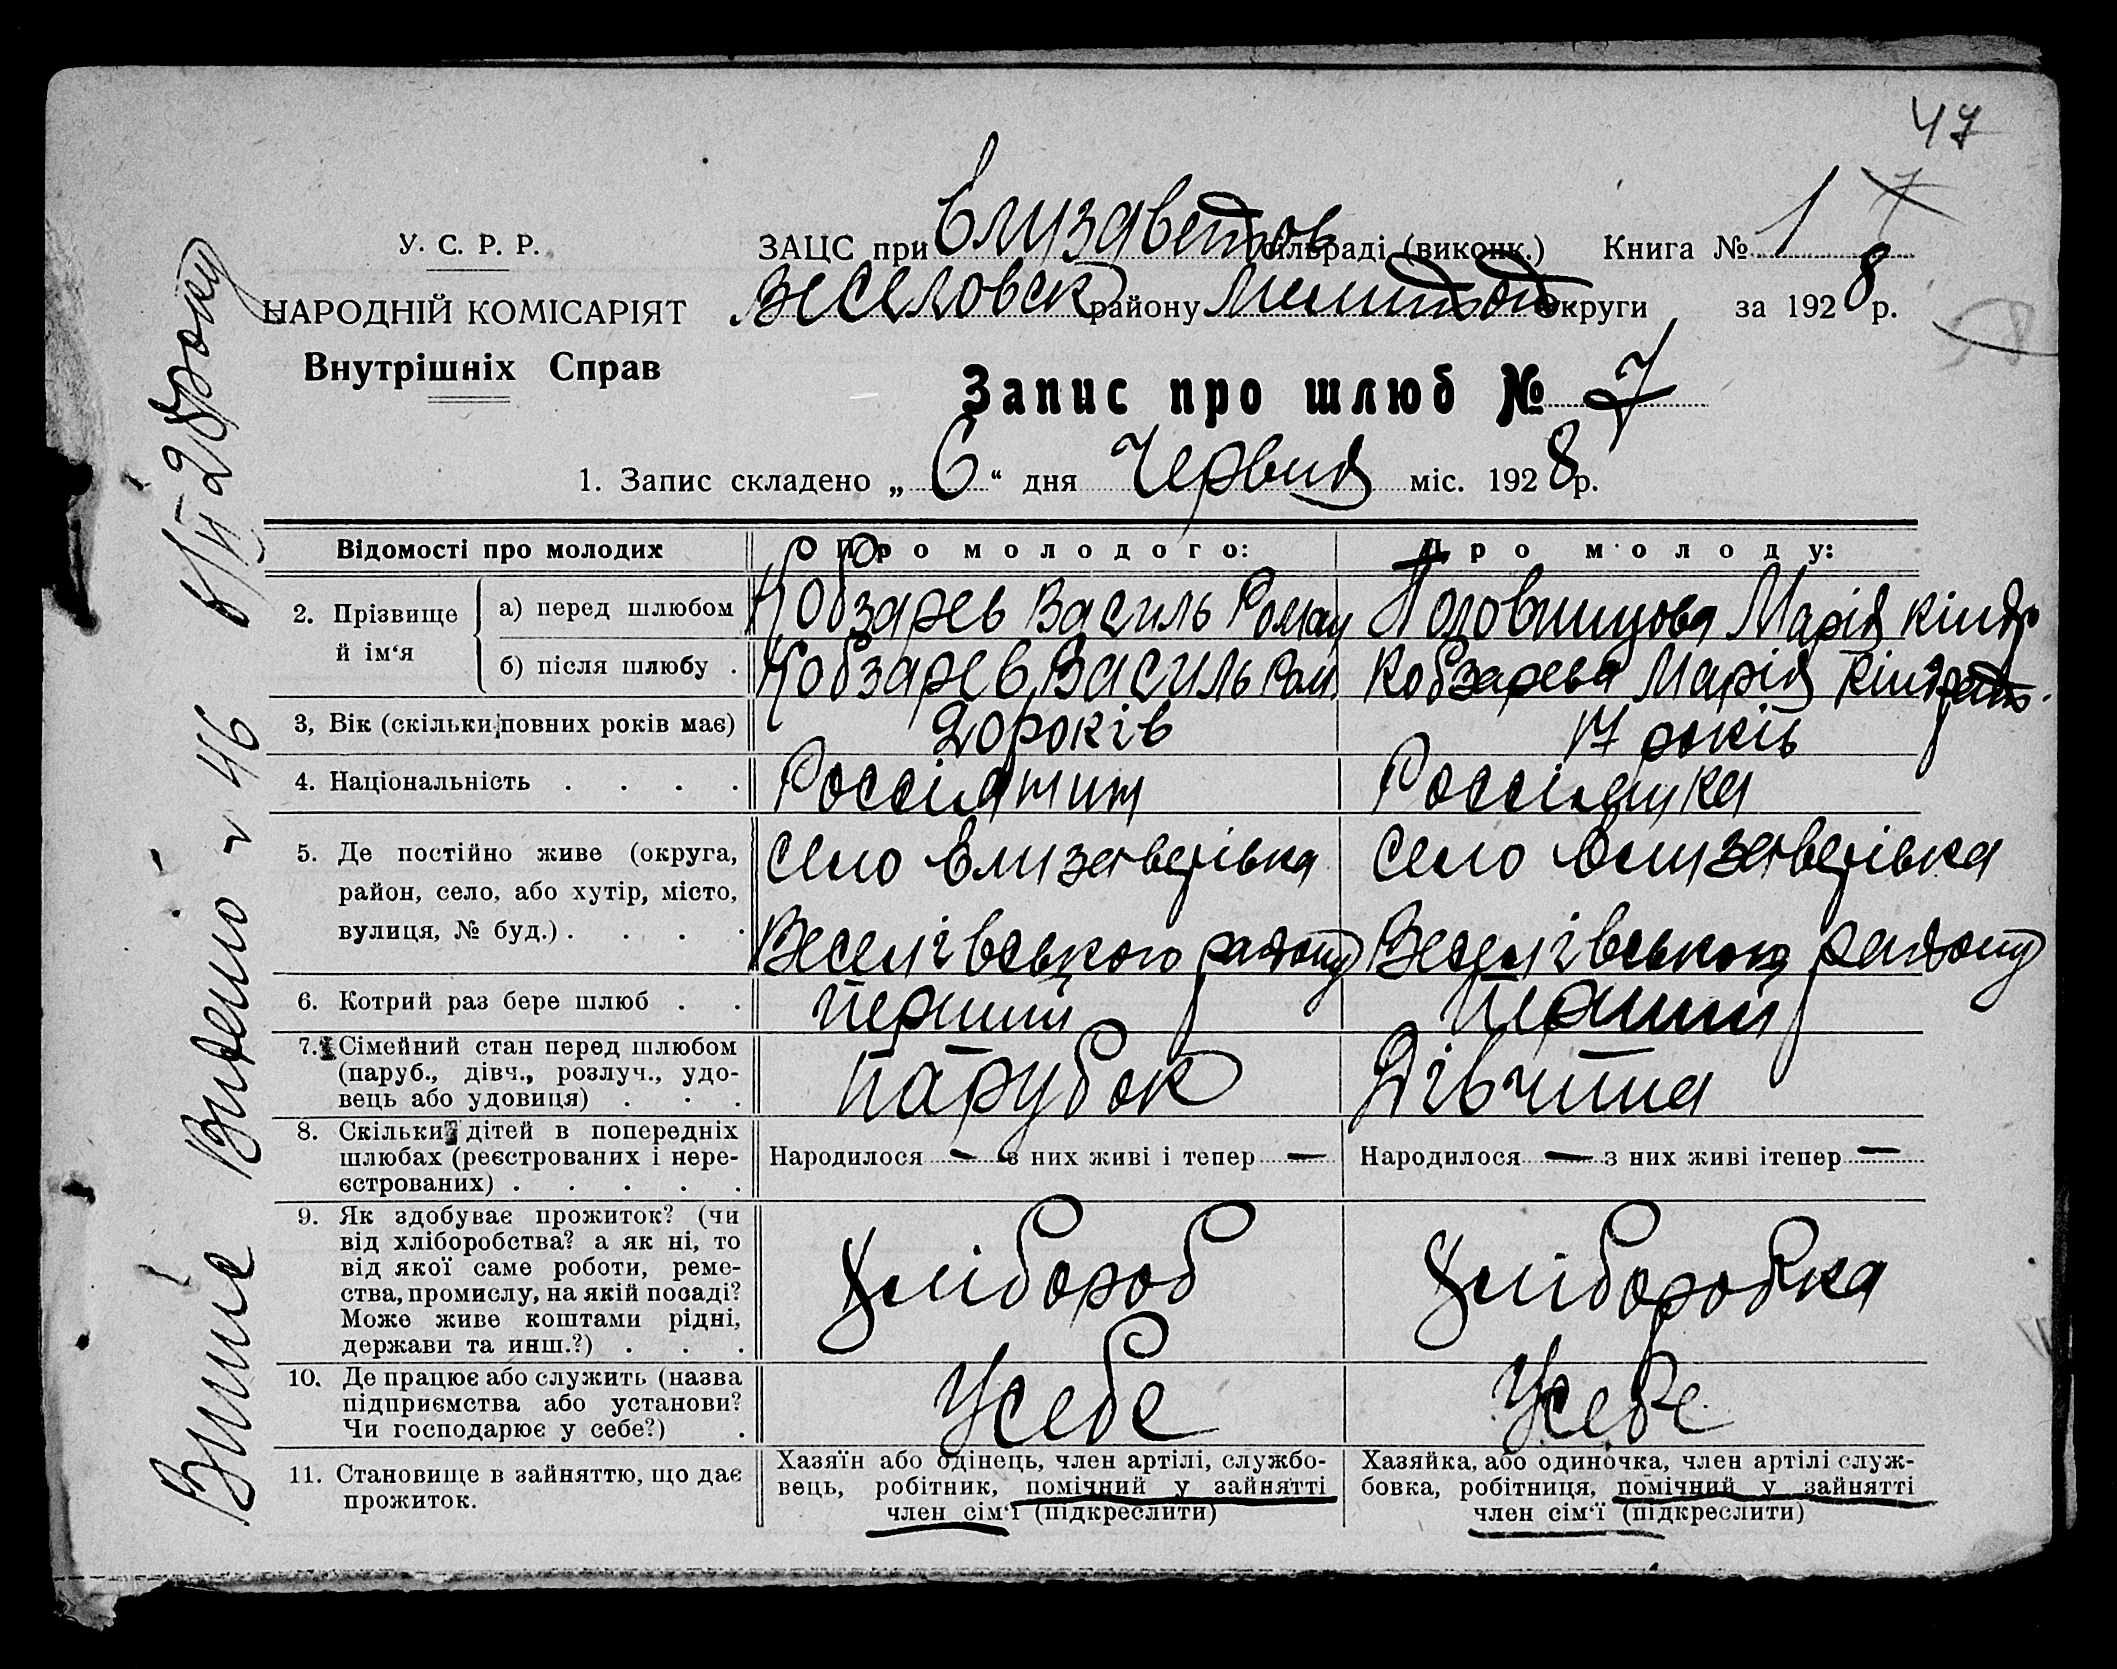 47
7
У. С. Р. Р.
НАРОДНІЙ КОМІСАРІЯТ
Внутрішніх Справ
ЗАЦС при Єлизаветов сільраді (виконк.) Книга № 1
Веселовск району Мелітоп округи за 1928 р.
Запис про шлюб № 7
1. Запис складено „ 6 “ дня Червня міс. 1928 р.
Відомості про молодих
Про молодого:
Про молоду:
2. Прізвище й ім‘я
а) перед шлюбом
Кобзарев Василь Роман
Половинцова Марія Кіндр
б) після шлюбу .
Кобзарев Василь Ром.
Кобзарева Марія Кіндрат.
3, Вік (скільки повних років має)
20 років
17 років
4. Національність . . . .
Россіянин
Россіянка
5. Де постійно живе (округа,
район, село, або хутір, місто,
вулиця, № буд.) . . . .
село Єлизаветівка
Веселівського району
село Єлизаветівка
Веселівського району
6. Котрий раз бере шлюб . .
перший
перший
7. Сімейний стан перед шлюбом
(паруб., дівч., розлуч., удо-
вець або удовиця) . . .
парубок
Дівчина
8. Скільки дітей в попередніх
шлюбах (реєстрованих і нере-
єстрованих) . . . . .
Народилося — з них живі і тепер —
Народилося — з них живі ітепер —
9. Як здобуває прожиток? (чи
від хліборобства? а як ні, то
від якої саме роботи, реме-
ства, промислу, на якій посаді?
Може живе коштами рідні,
держави та инш.?) . . .
Хлібороб
Хліборобка
10. Де працює або служить (назва
підприємства або установи?
Чи господарює у себе?) .
У себе
У себе
11. Становище в зайняттю, що дає
прожиток.
Хазяїн або одінець, член артілі, службо-
вець, робітник, помічний у зайнятті
член сім‘ї (підкреслити)
Хазяйка, або одиночка, член артілі служ-
бовка, робітниця, помічний у зайнятті
член сім‘ї (підкреслити)
Видено 46 6/VI 28 року